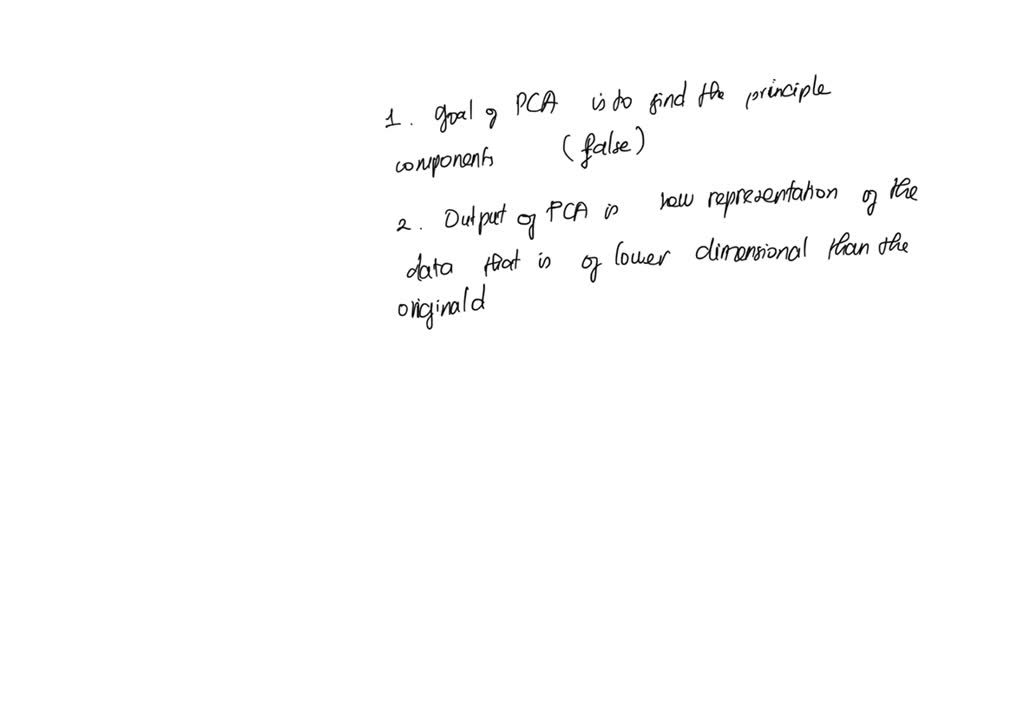 1. goal of PCA is to find the principle
components (false)
2. Output of PCA is new representation of the
data that is of lower dimensional than the
original d